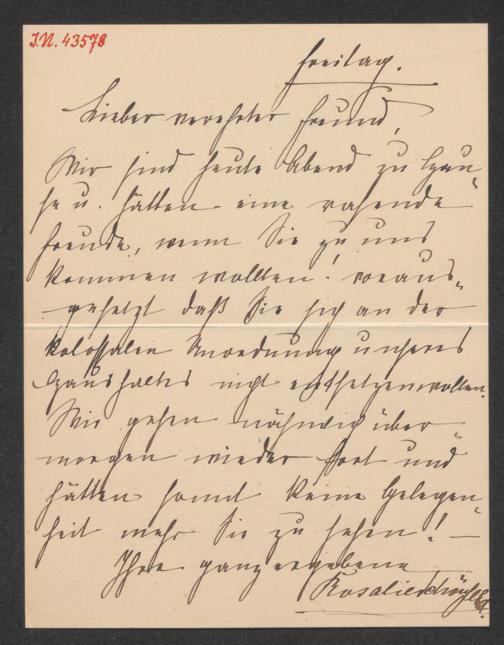 I.N. 43578
Freitag.
Lieber verehrter Freund,
Wir sind heute Abend zu Hau-
se u. hätten eine rasende
Freude, wenn Sie zu uns
kommen wollten! voraus-
gesetzt daß Sie sich an der
kolossalen Unordnung unseres
Haushaltes nicht entsetzen wollen.
Wir gehen nähmlich über-
morgen wieder fort und
hätten somit keine Gelegen-
heit mehr Sie zu sehen! —
Ihre ganz ergebene
Rosalie